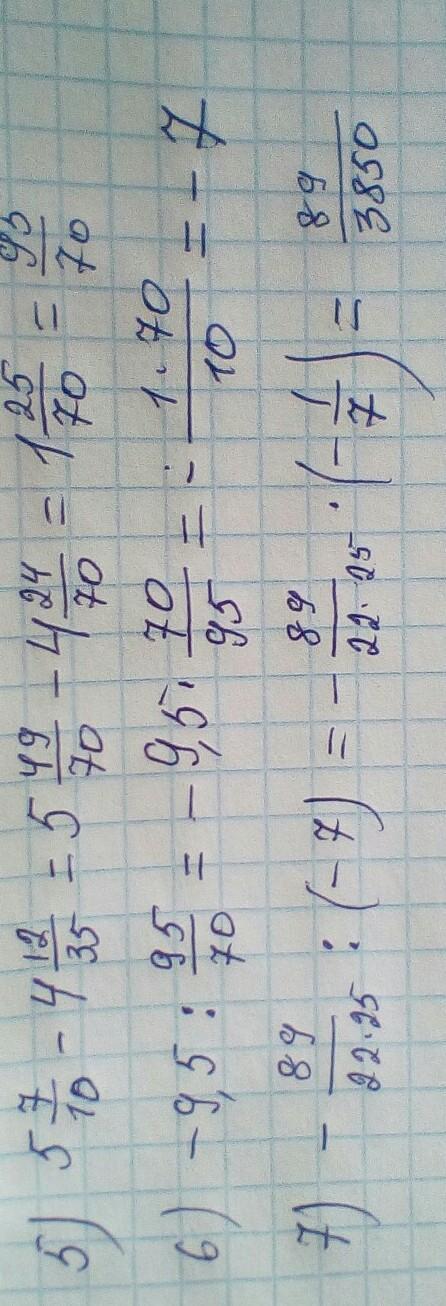 5) 5 7/10 - 4 12/35 = 5 49/70 - 4 24/70 = 1 25/70 = 95/70
6) -9,5 : 95/70 = -9,5 · 70/95 = - (1·70)/10 = -7
7) - 89/(22·25) : (-7) = - 89/(22·25) · (- 1/7) = 89/3850